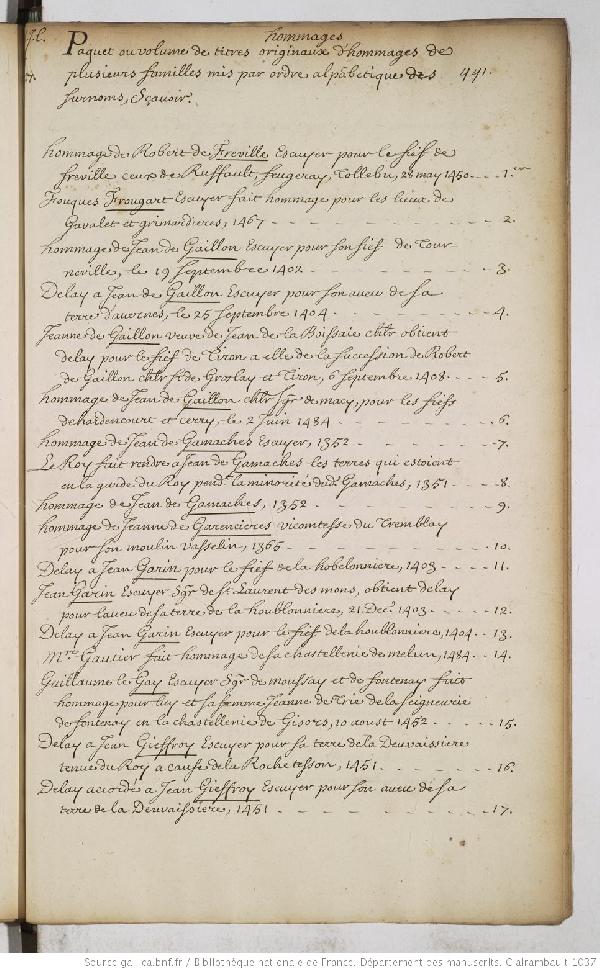 hommages
Paquet ou volume de titres originaux d'hommages de
plusieurs familles mis par ordre alphabetique des 441.
surnoms, Sçavoir.
hommage de Robert de Freville Escuyer pour le fief de
freville ceux de Ruffault, feugeray, Tollebu, 28 may 1450 - - - 1.er
Fouques Frougart Escuyer fait hommage pour les lieux de
Gavalet et grimardieres, 1467 - - - 2.
hommage de Jean de Gaillon Escuyer pour son fief de Tour
neville, le 19 Septembre 1402 - - - 3.
Delay a Jean de Gaillon Escuyer pour son aveu de sa
terre d'auvenes, le 25 septembre 1404 - - - 4.
Jeanne de Gaillon veuve de Jean de la Boissaie chlr obtient
delay pour le fief de Tiron a elle de la succession de Robert
de Gaillon chlr sr de Groslay et Tiron, 6 septembre 1408 - - - 5.
hommage de Jean de Gaillon chlr sgr de macy, pour les fiefs
de hardencourt et cerry, le 2 Juin 1484 - - - 6.
hommage de Jean de Gamaches Escuyer, 1352 - - - 7.
Le Roy fait rendre a Jean de Gamaches les terres qui estoient
en la garde du Roy pend. la minorité dud. Gamaches, 1351 - - - 8.
hommage de Jean de Gamaches, 1352 - - - 9.
hommage de Jeanne de Garencieres vicomtesse du Tremblay
pour son moulin vasselin, 1365 - - - 10.
Delay a Jean Garin pour le fief de la hobelonniere, 1403 - - - 11.
Jean Garin Escuyer Sgr de St. Laurent des mons, obtient delay
pour l'aveu de sa terre de la houblonniere, 21 Dec. 1403 - - - 12.
Delay a Jean Garin Escuyer pour le fief de la houblonniere, 1404 - - 13.
Mre Gautier fait hommage de sa chastellenie de melun, 1484 - - 14.
Guillaume le Gay Escuyer Sgr de moussay et de fontenay fait
hommage pour luy et sa femme Jeanne de Trie de la seigneurie
de fontenay en la chastellenie de Gisors, 10 aoust 1452 - - - 15.
Delay a Jean Gieffroy Escuyer pour sa terre de la Deuvaissiere
tenue du Roy a cause de la Roche tesson, 1451 - - - 16.
Delay accordé a Jean Gieffroy Escuyer pour son aveu de sa
terre de la Deuvaissiere, 1451 - - - 17.
Source gallica.bnf.fr / Bibliothèque nationale de France. Département des manuscrits. Clairambault 1037